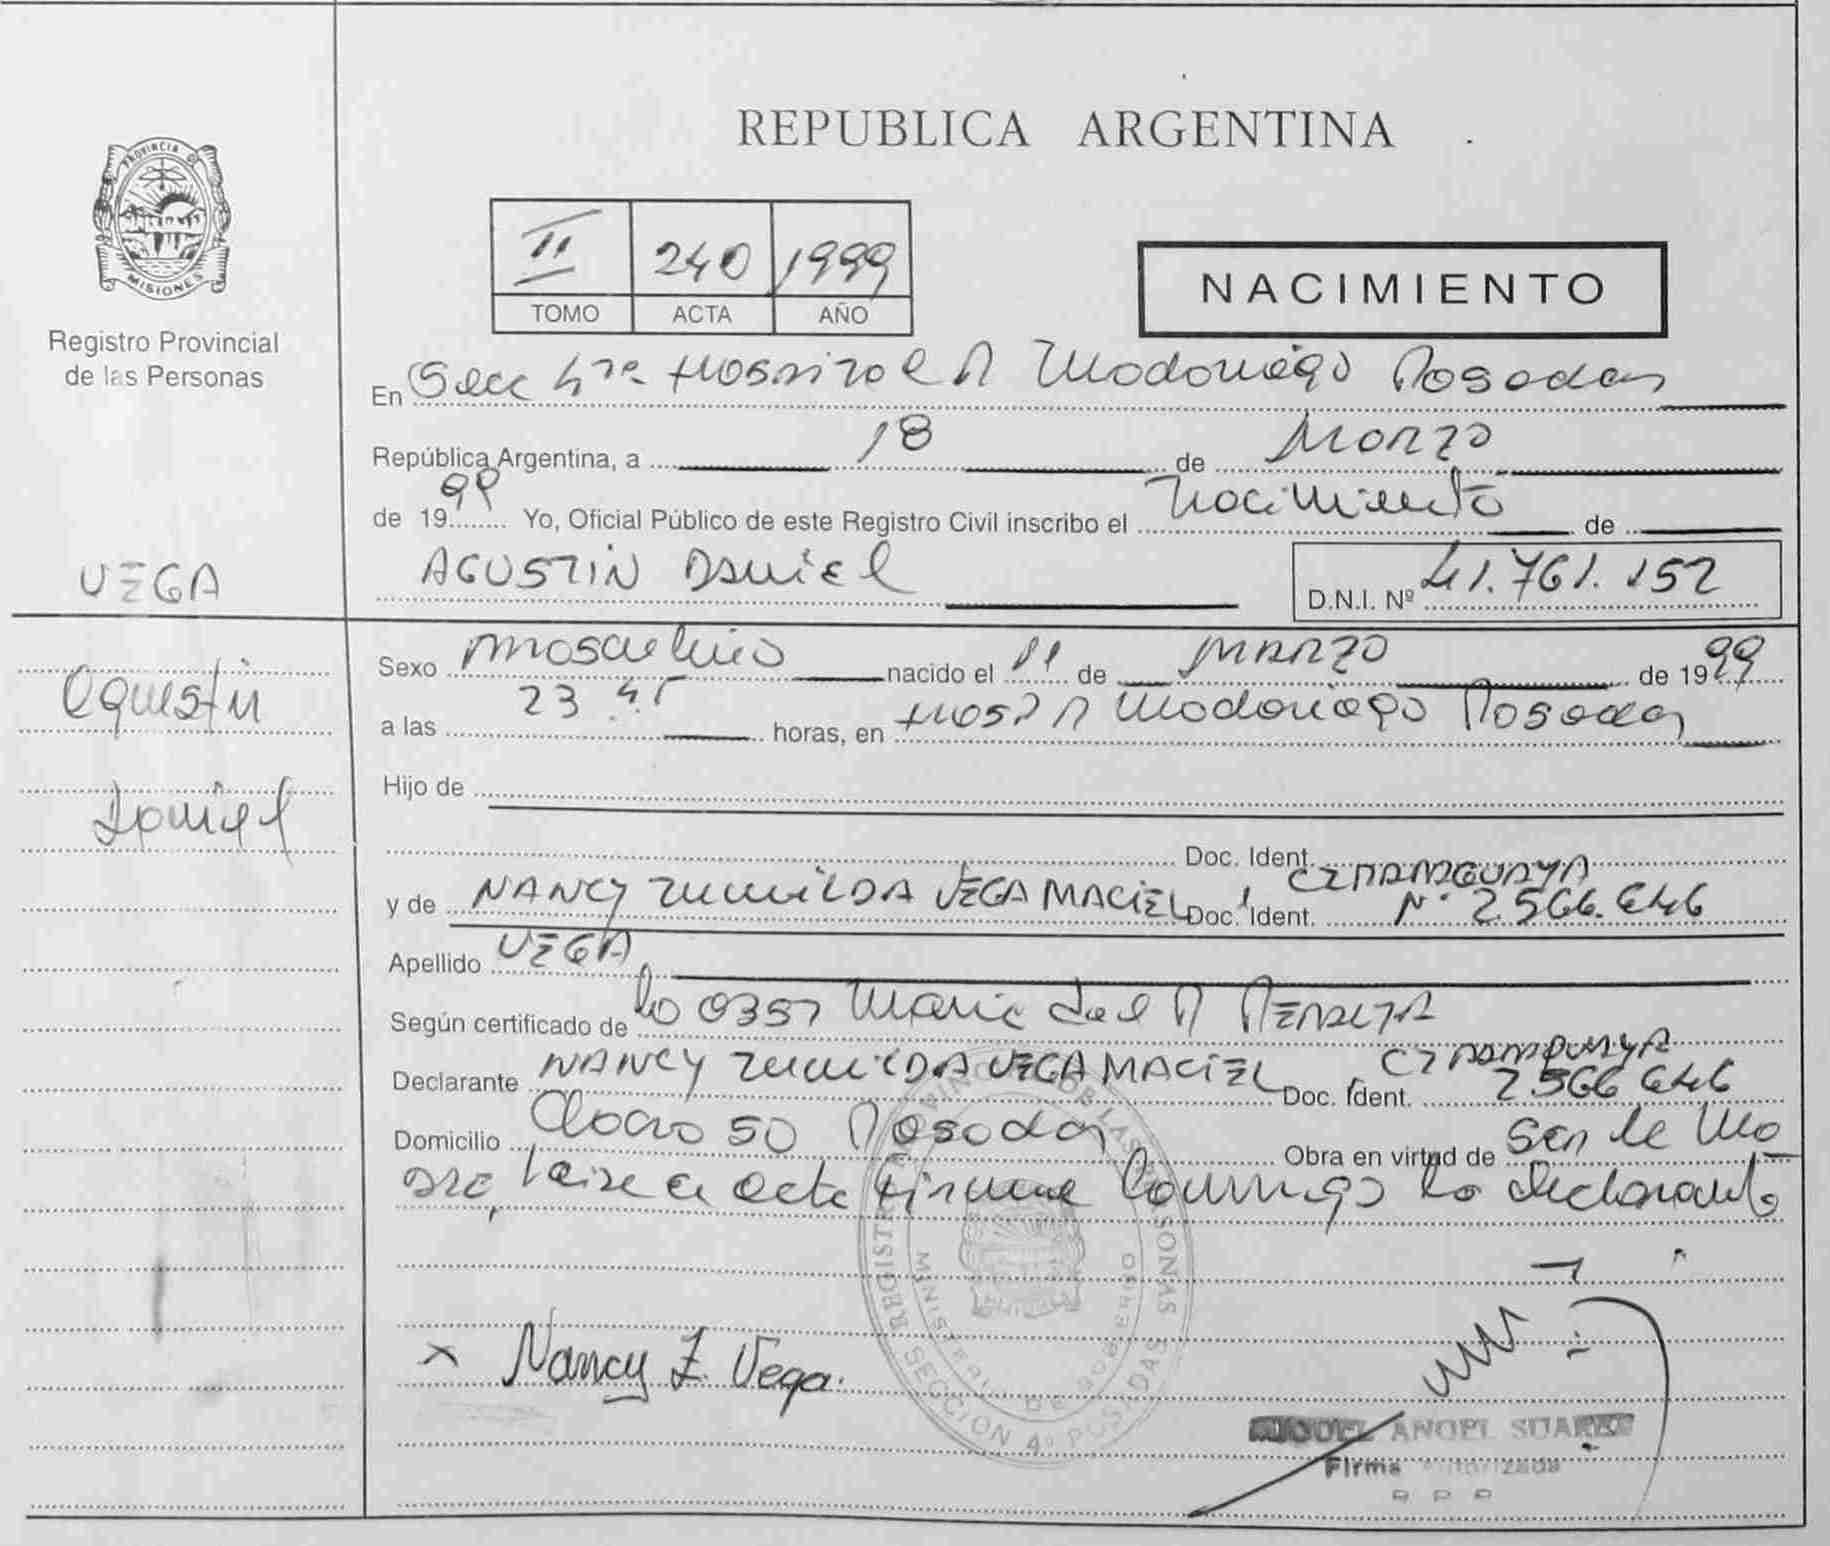 PROVINCIA DE
MISIONES
Registro Provincial
de las Personas
VEGA
Agustin
Daniel
REPUBLICA ARGENTINA
II 240 1999
TOMO ACTA AÑO
NACIMIENTO
En Secc 4ta Hospital R Madariaga Posadas
República Argentina, a 18 de Marzo
de 1999 Yo, Oficial Público de este Registro Civil inscribo el nacimiento de
AGUSTIN Daniel D.N.I. Nº 41.761.152
Sexo masculino nacido el 11 de MARZO de 1999
a las 23.45 horas, en Hosp R Madariaga Posadas
Hijo de
Doc. Ident.
y de NANCY ZUNILDA VEGA MACIEL Doc. Ident. CI PARAGUAYA Nº 2.566.646
Apellido VEGA
Según certificado de María del R PERALTA
Declarante NANCY ZUNILDA VEGA MACIEL Doc. Ident. CI PARAGUAYA 2566646
Domicilio Chaco 50 Posadas Obra en virtud de ser la Ma
dre, acta firma conmigo la declarante
REGISTRO PROVINCIAL DE LAS PERSONAS
MINISTERIO DE GOBIERNO
SECCION 4º POSADAS
x Nancy Z. Vega.
MIGUEL ANGEL SUAREZ
Firma Autorizada
R P P